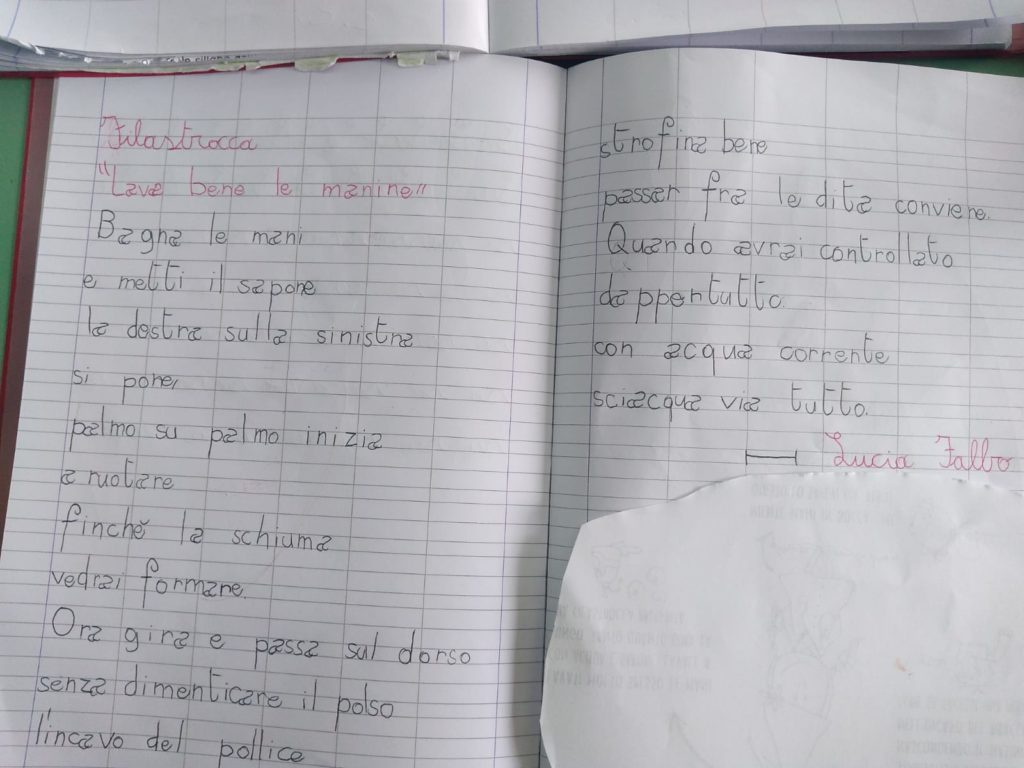 Filastrocca
"Lava bene le manine"
Bagna le mani
e metti il sapone
la destra sulla sinistra
si pone,
palmo su palmo inizia
a ruotare
finché la schiuma
vedrai formare.
Ora gira e passa sul dorso
senza dimenticare il polso
l'incavo del pollice
strofina bene
passar fra le dita conviene.
Quando avrai controllato
dappertutto
con acqua corrente
sciacqua via tutto.
Lucia Falbo